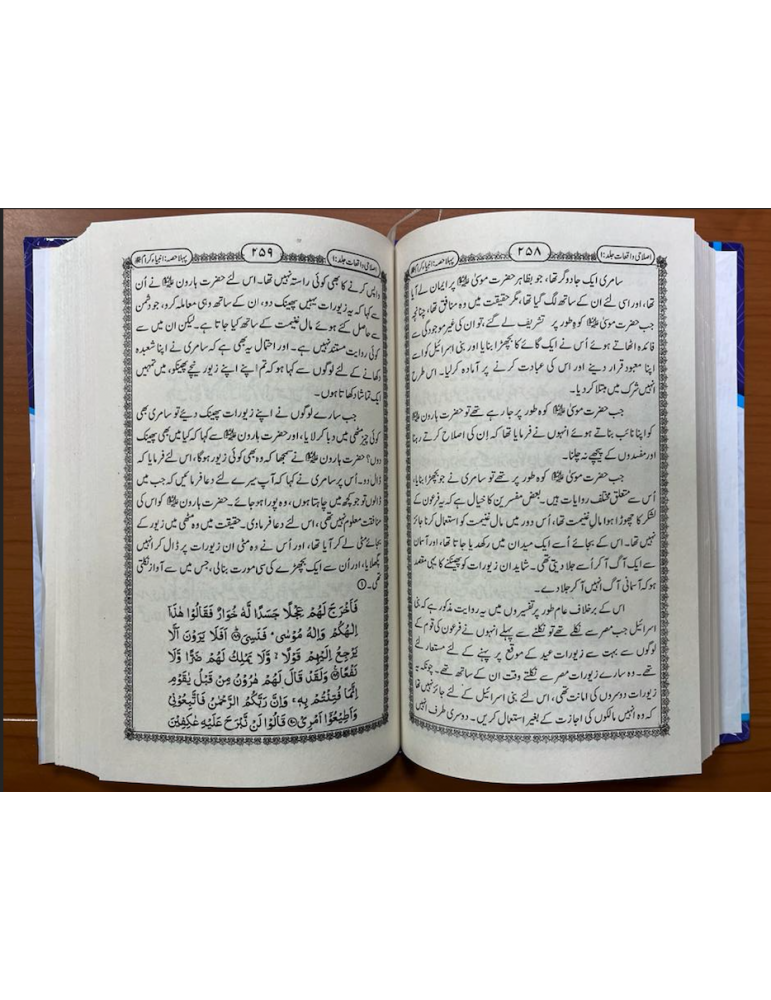 اصلاحی واقعات جلد:۱ ۲۵۸ پہلا حصہ: انبیاء کرام
سامری ایک جادوگر تھا، جو بظاہر حضرت موسیٰ علیہ السلام پر ایمان لے آیا
تھا، اور اسی لئے ان کے ساتھ لگ گیا تھا، مگر حقیقت میں وہ منافق تھا، چنانچہ
جب حضرت موسیٰ علیہ السلام کوہ طور پر تشریف لے گئے، تو ان کی غیر موجودگی سے
فائدہ اٹھاتے ہوئے اُس نے ایک گائے کا بچھڑا بنایا اور بنی اسرائیل کو اسے
اپنا معبود قرار دینے اور اس کی عبادت کرنے پر آمادہ کرلیا۔ اس طرح
انہیں شرک میں مبتلا کردیا۔
جب حضرت موسیٰ علیہ السلام کوہ طور پر جارہے تھے تو حضرت ہارون علیہ السلام
کو اپنا نائب بناتے ہوئے انہوں نے فرمایا تھا کہ اِن کی اصلاح کرتے رہنا
اور مفسدوں کے پیچھے نہ چلنا۔
جب حضرت موسیٰ علیہ السلام کوہ طور پر تھے تو سامری نے جو بچھڑا بنایا،
اُس سے متعلق مختلف روایات ہیں۔ بعض مفسرین کا خیال ہے کہ یہ فرعون کے
لشکر کا چھوڑا ہوا مال غنیمت تھا، اُس دور میں مال غنیمت کو استعمال کرنا جائز
نہیں تھا۔ اس کے بجائے اُسے ایک میدان میں رکھدیا جاتا تھا، اور آسمان
سے ایک آگ آکر اُسے جلا دیتی تھی۔ شاید ان زیورات کو پھینکنے کا یہی مقصد
ہو کہ آسمانی آگ انہیں آکر جلا دے۔
اس کے برخلاف عام طور پر تفسیروں میں یہ روایت مذکور ہے کہ بنی
اسرائیل جب مصر سے نکلے تھے تو نکلنے سے پہلے انہوں نے فرعون کی قوم کے
لوگوں سے بہت سے زیورات عید کے موقع پر پہننے کے لئے مستعار لئے
تھے۔ وہ سارے زیورات مصر سے نکلتے وقت ان کے ساتھ تھے۔ چونکہ یہ
زیورات دوسروں کی امانت تھی، اس لئے بنی اسرائیل کے لئے جائز نہیں تھا
کہ وہ انہیں مالکوں کی اجازت کے بغیر استعمال کریں۔ دوسری طرف انہیں
اصلاحی واقعات جلد:۱ ۲۵۹ پہلا حصہ: انبیاء کرام
واپس کرنے کا بھی کوئی راستہ نہیں تھا۔ اس لئے حضرت ہارون علیہ السلام نے اُن
سے کہا کہ یہ زیورات یہیں پھینک دو، ان کے ساتھ وہی معاملہ کرو، جو دشمن
سے حاصل کئے ہوئے مال غنیمت کے ساتھ کیا جاتا ہے۔ لیکن ان میں سے
کوئی روایت مستند نہیں ہے۔ اور احتمال یہ بھی ہے کہ سامری نے اپنا شعبدہ
دکھانے کے لئے لوگوں سے کہا ہو کہ تم اپنے اپنے زیورات نیچے پھینکو، میں تمہیں
ایک تماشا دکھاتا ہوں۔
جب سارے لوگوں نے اپنے زیورات پھینک دئیے تو سامری بھی
کوئی چیز مٹھی میں دبا کر لایا، اور حضرت ہارون علیہ السلام سے کہا کہ کیا میں بھی پھینک
دوں؟ حضرت ہارون علیہ السلام نے سمجھا کہ وہ بھی کوئی زیور ہوگا، اس لئے فرمایا کہ
ڈال دو۔ اُس پر سامری نے کہا کہ آپ میرے لئے دعا فرمائیں کہ جب میں
ڈالوں تو جو کچھ میں چاہتا ہوں، وہ پورا ہو جائے۔ حضرت ہارون علیہ السلام کو اس کی
منافقت معلوم نہیں تھی، اس لئے دعا فرمادی۔ حقیقت میں وہ مٹھی میں زیور کے
بجائے مٹی لے کر آیا تھا، اور اُس نے وہ مٹی ان زیورات پر ڈال کر انہیں
پگھلایا، اور اُن سے ایک بچھڑے کی سی مورت بنالی، جس میں سے آواز نکلتی
تھی۔①
فَاَخْرَجَ لَهُمْ عِجْلًا جَسَدًا لَّهٗ خُوَارٌ فَقَالُوْا هٰذَآ
اِلٰهُكُمْ وَاِلٰهُ مُوْسٰى ۬ فَنَسِيَ ۟ اَفَلَا يَرَوْنَ اَلَّا
يَرْجِعُ اِلَيْهِمْ قَوْلًا ۬ وَّلَا يَمْلِكُ لَهُمْ ضَرًّا وَّلَا
نَفْعًا ۟ وَلَقَدْ قَالَ لَهُمْ هٰرُوْنُ مِنْ قَبْلُ يٰقَوْمِ
اِنَّمَا فُتِنْتُمْ بِهٖ ۚ وَاِنَّ رَبَّكُمُ الرَّحْمٰنُ فَاتَّبِعُوْنِيْ
وَاَطِيْعُوْٓا اَمْرِيْ ۟ قَالُوْا لَنْ نَّبْرَحَ عَلَيْهِ عٰكِفِيْنَ